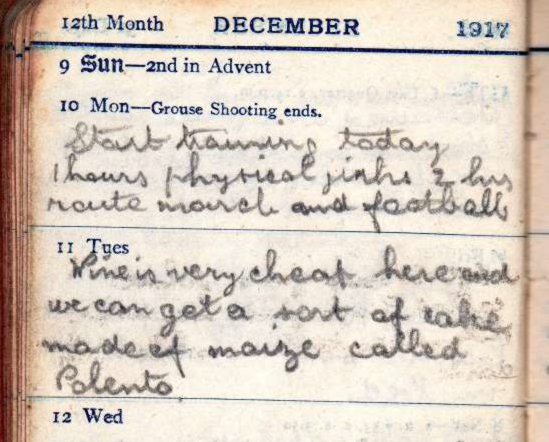 12th Month DECEMBER 1917
9 Sun—2nd in Advent
10 Mon—Grouse Shooting ends.
Start training today
1 hours physical jirks 2 hrs
route march and football
11 Tues
Wine is very cheap here and
we can get a sort of cake
made of maize called
Polento
12 Wed